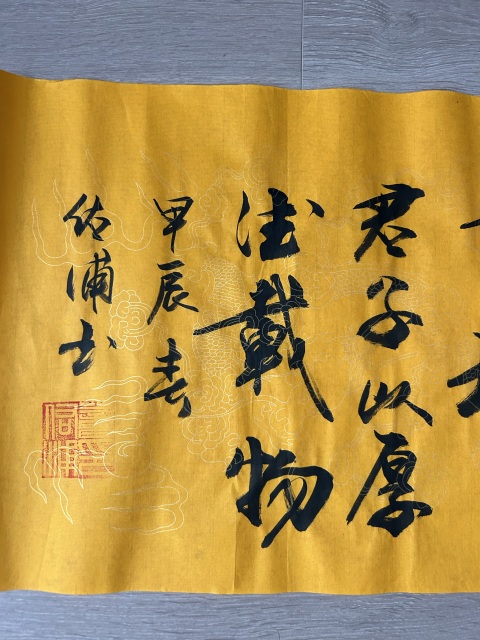 君子以厚
德載物
甲辰春
佑浦书